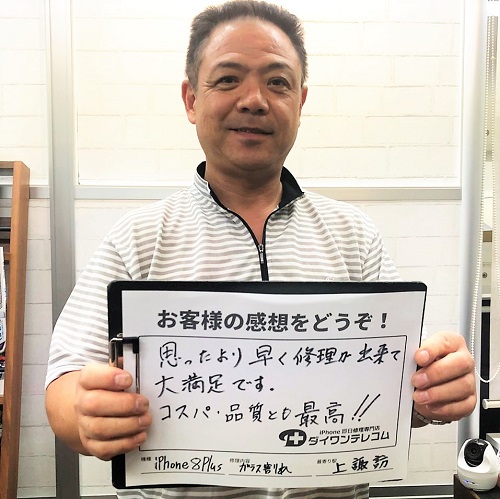 お客様の感想をどうぞ!
思ったより早く修理が出来て
大満足です。
コスパ・品質とも最高!!
iPhone 即日修理専門店
ダイワンテレコム
機種 iPhone 8 Plus 修理内容 ガラス割れ 最寄り駅 上諏訪